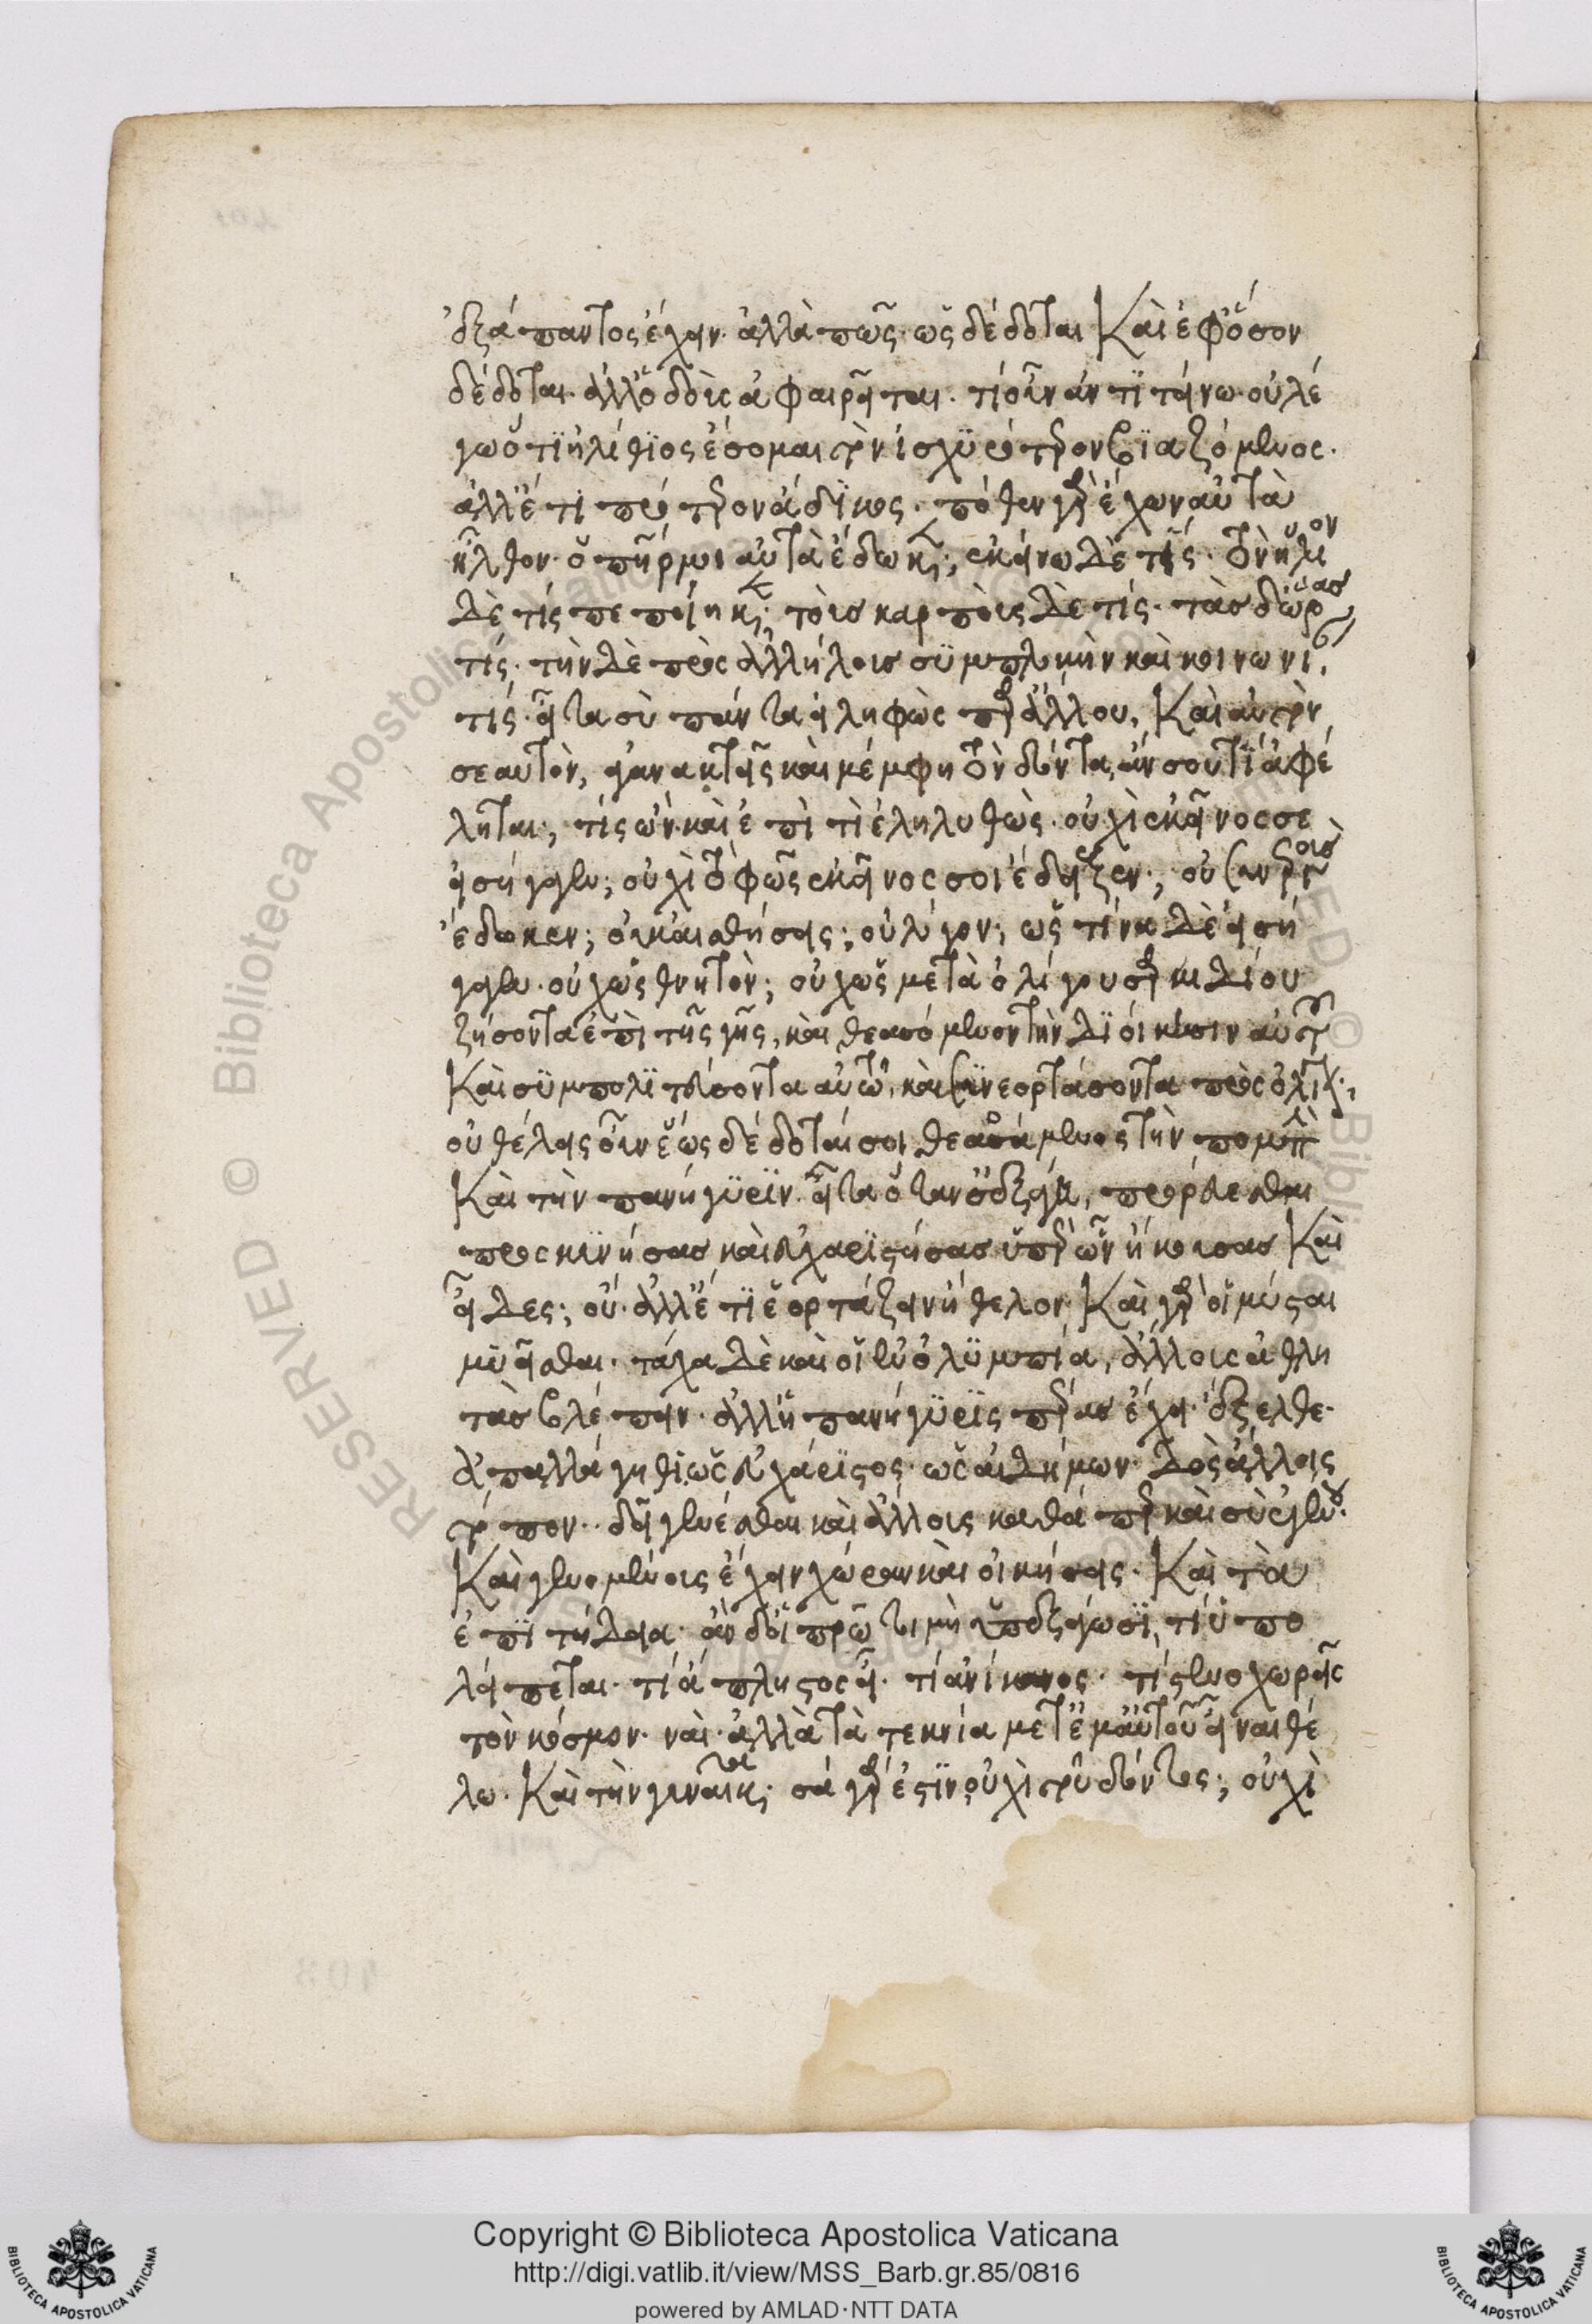 ἐξάπαντος ἔχειν· ἀλλὰ πῶς· ὡς δέδοται καὶ ἐφ' ὅσον
δέδοται· ἀλλ' ὁ δοὺς ἀφαιρεῖται· τί οὖν ἀντιτείνω· οὐ λέ
γω ὅτι ἠλίθιος ἔσομαι τὸν ἰσχυρότερον βιαζόμενος·
ἀλλ' ἔτι πρότερον ἄδικος· πόθεν γὰρ ἔχων αὐτὰ
ἦλθον· ὁ πατήρ μοι αὐτὰ ἔδωκεν; ἐκείνω δὲ τίς· τὸν ἥλιον
δὲ τίς πεποίηκεν; τοὺς καρποὺς δὲ τίς· τὰς δ' ὥρας
τίς· τὴν δὲ πρὸς ἀλλήλους συμπλοκὴν καὶ κοινωνίαν
τίς· εἶτα σὺ πάντα εἰληφὼς παρ' ἄλλου, καὶ αὐτὸν
σεαυτὸν, ἀγανακτεῖς καὶ μέμφη τὸν δόντα, ἄν σού τι ἀφέ
ληται; τίς ὢν καὶ ἐπὶ τί ἐληλυθώς· οὐχὶ ἐκεῖνος σε
εἰσήγαγεν; οὐχὶ τὸ φῶς ἐκεῖνος σοι ἔδειξεν; οὐ συνεργοὺς
ἔδωκεν; οὐ καὶ αἰσθήσεις; οὐ λόγον; ὡς τίνα δὲ εἰσή
γαγεν· οὐχ ὡς θνητὸν; οὐχ ὡς μετὰ ὀλίγου σαρκιδίου
ζήσοντα ἐπὶ τῆς γῆς, καὶ θεασόμενον τὴν διοίκησιν αὐτοῦ
καὶ συμπολιτεύσοντα αὐτῶ, καὶ συνεορτάσοντα πρὸς ὀλίγον;
οὐ θέλεις οὖν ἕως δέδοταί σοι θεασάμενος τὴν πομπὴν
καὶ τὴν πανήγυριν· εἶτα ὅταν σ' ἐξάγη, πορεύεσθαι
προσκυνήσας καὶ εὐχαριστήσας ὑπὲρ ὧν ἤκουσας καὶ
εἶδες; οὔ· ἀλλ' ἔτι ἑορτάζειν ἤθελον· καὶ γὰρ οἱ μύσται
μυεῖσθαι· τάχα δὲ καὶ οἱ ἐν ὀλυμπία, ἄλλους ἀθλη
τὰς βλέπειν· ἀλλ' ἡ πανήγυρις πέρας ἔχει· ἔξελθε·
ἀπαλλάγηθι ὡς εὐχάριστος· ὡς αἰδήμων· δὸς ἄλλοις
τόπον· δεῖ γενέσθαι καὶ ἄλλους καθάπερ καὶ σὺ ἐγένου·
καὶ γενομένους ἔχειν χώραν καὶ οἰκήσεις· καὶ τὰ
ἐπιτήδεια· ἂν δ' οἱ πρῶτοι μὴ ὑπεξάγωσι, τί ὑπο
λείπεται· τί ἄπληστος εἶ· τί ἀνίκανος· τί στενοχωρεῖς
τὸν κόσμον· ναὶ· ἀλλὰ τὰ τεκνία μετ' ἐμαυτοῦ εἶναι θέ
λω· καὶ τὴν γυναῖκα; σὰ γάρ ἐστιν· οὐχὶ τοῦ δόντος; οὐχὶ
Copyright © Biblioteca Apostolica Vaticana
http://digi.vatlib.it/view/MSS_Barb.gr.85/0816
powered by AMLAD·NTT DATA